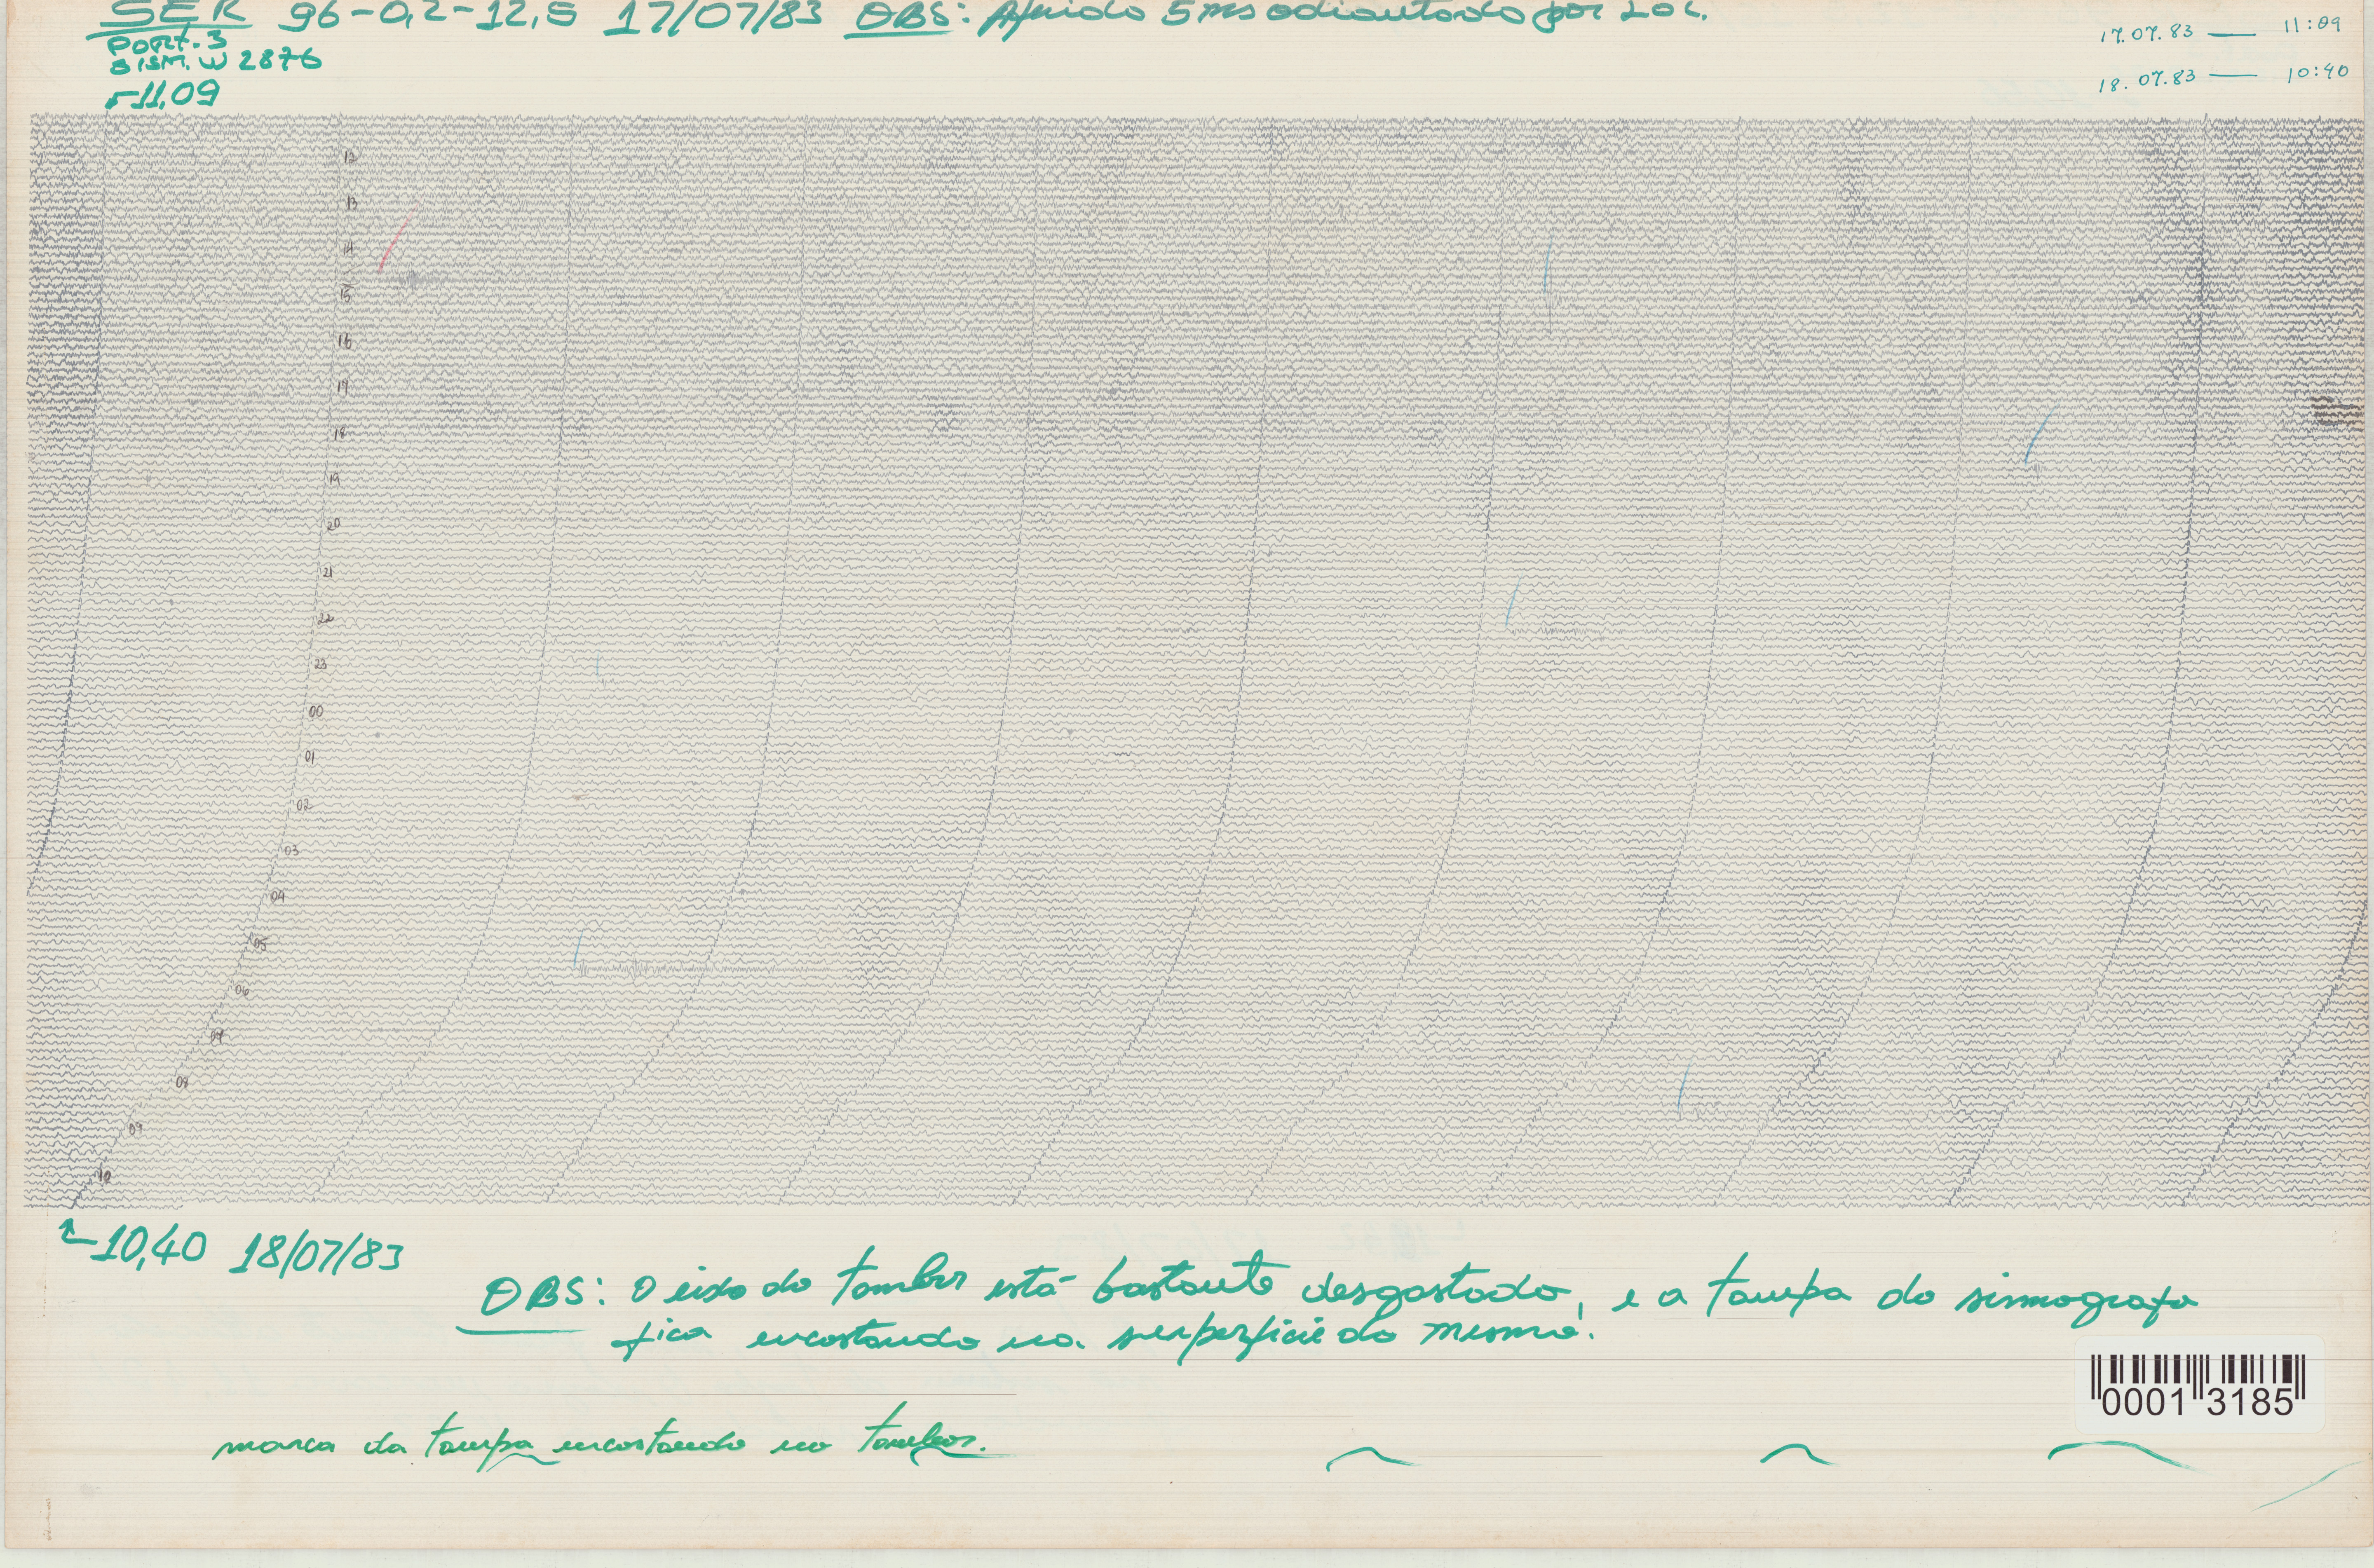 SER 96-0,2-12,5 17/07/83 OBS: Aferido 5 ms adiantado por LOC.
PORT. 3
SISM. W 2876
11,09
17.07.83 — 11:09
18.07.83 — 10:40
12
13
14
15
16
17
18
19
20
21
22
23
00
01
02
03
04
05
06
07
08
09
10
10,40 18/07/83
OBS: O eixo do tambor está bastante desgastado, e a tampa do sismografo
fica encostando na superficie do mesmo.
marca da tampa encostando no tambor.
0001 3185